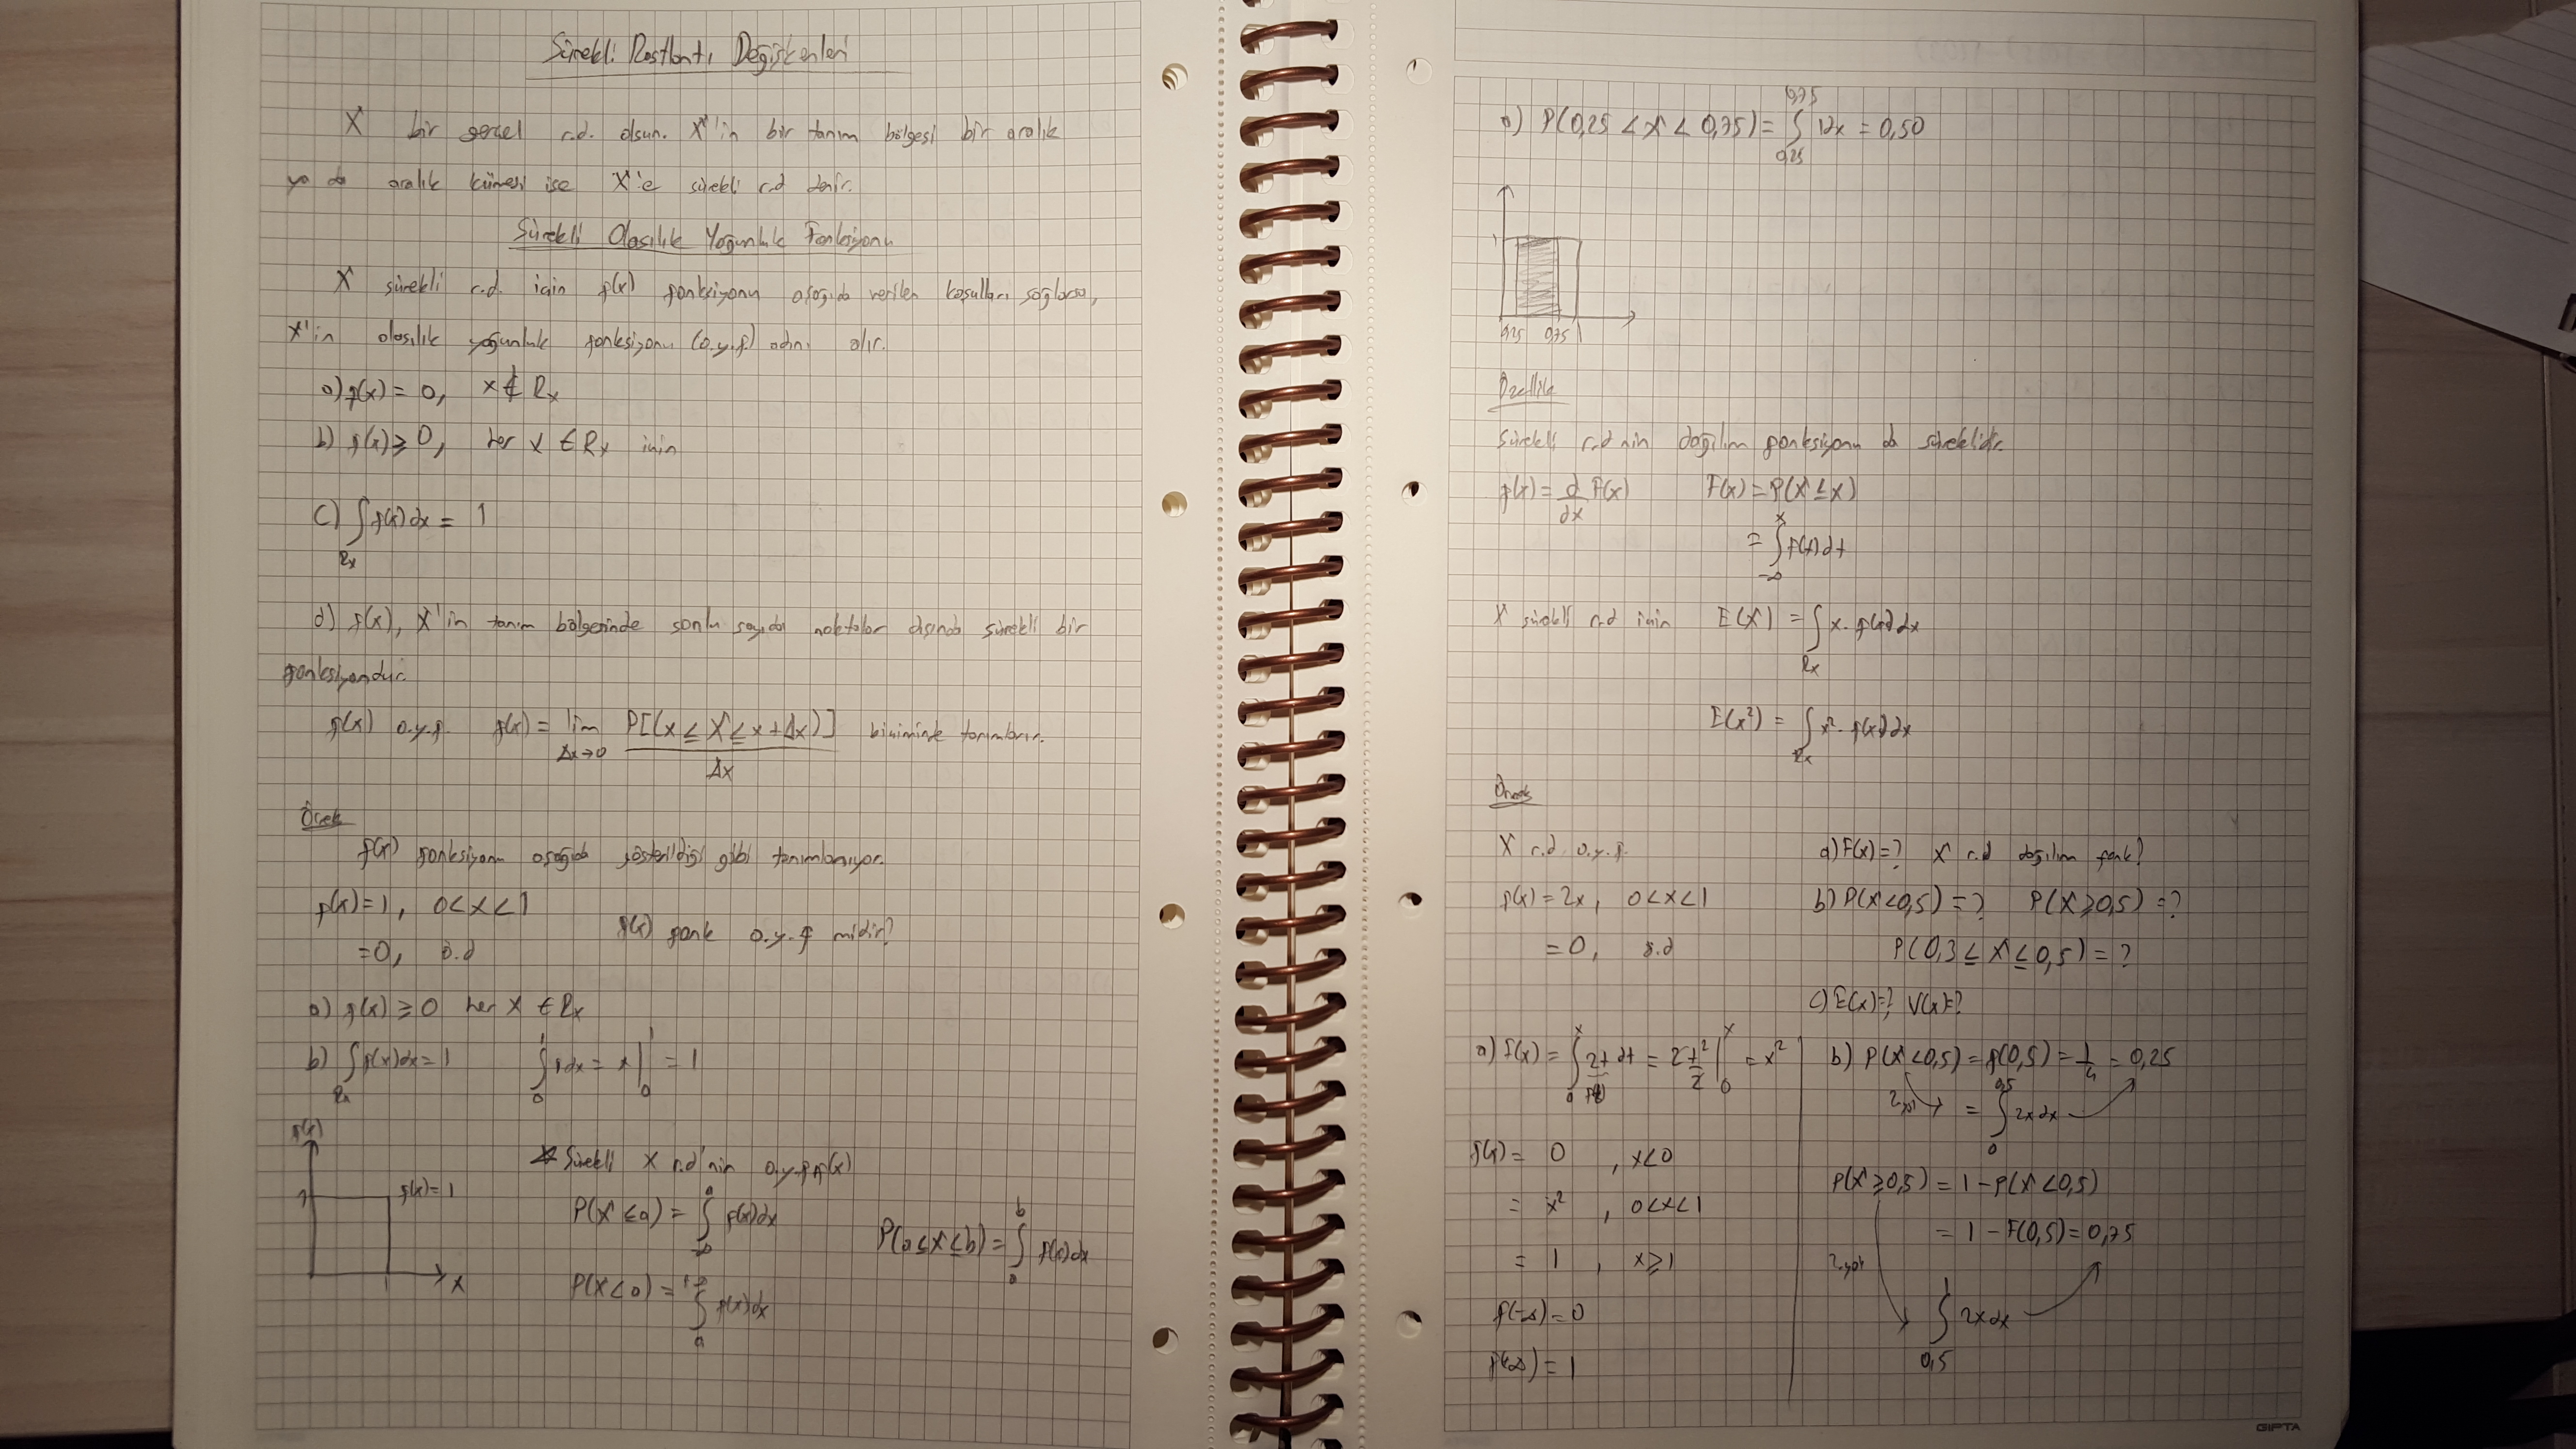 Sürekli Rastlantı Değişkenleri
X bir gerçel r.d. olsun. X'in bir tanım bölgesi bir aralık
ya da aralık kümesi ise X'e sürekli r.d denir.
Sürekli Olasılık Yoğunluk Fonksiyonu
X sürekli r.d. için f(x) fonksiyonu aşağıda verilen koşulları sağlarsa,
X'in olasılık yoğunluk fonksiyonu (o.y.f) adını alır.
a) f(x) = 0, x ∉ Rx
b) f(x) ≥ 0, her x ∈ Rx için
c) ∫Rx f(x) dx = 1
d) f(x), X'in tanım bölgesinde sonlu sayıda noktalar dışında sürekli bir
fonksiyondur.
f(x) o.y.f. f(x) = lim Δx→0 P[(x ≤ X ≤ x+Δx)] / Δx biçiminde tanımlanır.
Örnek
f(x) fonksiyonu aşağıda gösterildiği gibi tanımlanıyor.
f(x) = 1, 0<x<1
f(x) fonk o.y.f midir?
=0, ö.d
a) f(x) ≥ 0 her x ∈ Rx
b) ∫Rx f(x)dx = 1 ∫₀¹ 1dx = x|₀¹ = 1
f(x)
1
f(x) = 1
1
x
* Sürekli X r.d'nin o.y.f f(x)
P(X ≤ a) = ∫₋∞ᵃ f(x)dx
P(a≤X≤b) = ∫ₐᵇ f(x)dx
P(X<a) = ∫ₐ⁺∞ f(x)dx
a) P(0,25 < X < 0,75) = ∫0,25^0,75 1dx = 0,50
1
0,25 0,75 1
Özellik
Sürekli r.d nin dağılım fonksiyonu da süreklidir.
f(x) = d/dx F(x) F(x) = P(X ≤ x)
= ∫₋∞ˣ f(t)dt
X sürekli r.d için E(X) = ∫Rx x. f(x)dx
E(x²) = ∫Rx x². f(x)dx
Örnek
X r.d o.y.f.
f(x) = 2x, 0<x<1
= 0, ö.d
a) F(x)=? X r.d dağılım fonk?
b) P(X<0,5) = ? P(X≥0,5) = ?
P(0,3 ≤ X ≤ 0,5) = ?
c) E(x)=? V(x)=?
a) F(x) = ∫₀ˣ 2t dt = 2 t²/2 |₀ˣ = x²
f(x) = 0, x<0
= x², 0<x<1
= 1, x≥1
f(-∞) = 0
f(∞) = 1
b) P(X<0,5) = f(0,5) = 1/4 = 0,25
2.yol = ∫₀^0,5 2x dx
P(X≥0,5) = 1 - P(X<0,5)
= 1 - F(0,5) = 0,75
2.yol
∫0,5^1 2x dx
GIPTA